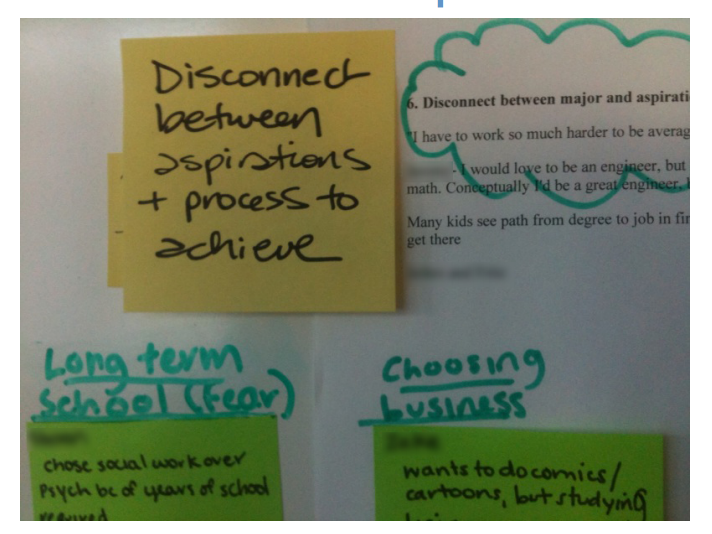 Disconnect
between
aspirations
+ process to
achieve
6. Disconnect between major and
"I have to work so much harder to be
- I would love to be an engineer, but
math. Conceptually I'd be a great engineer,
Many kids see path from degree to job in
get there
Long term
School (Fear)
chose social work over
Psych bc of years of school
required
Choosing
business
wants to do comics/
cartoons, but studying